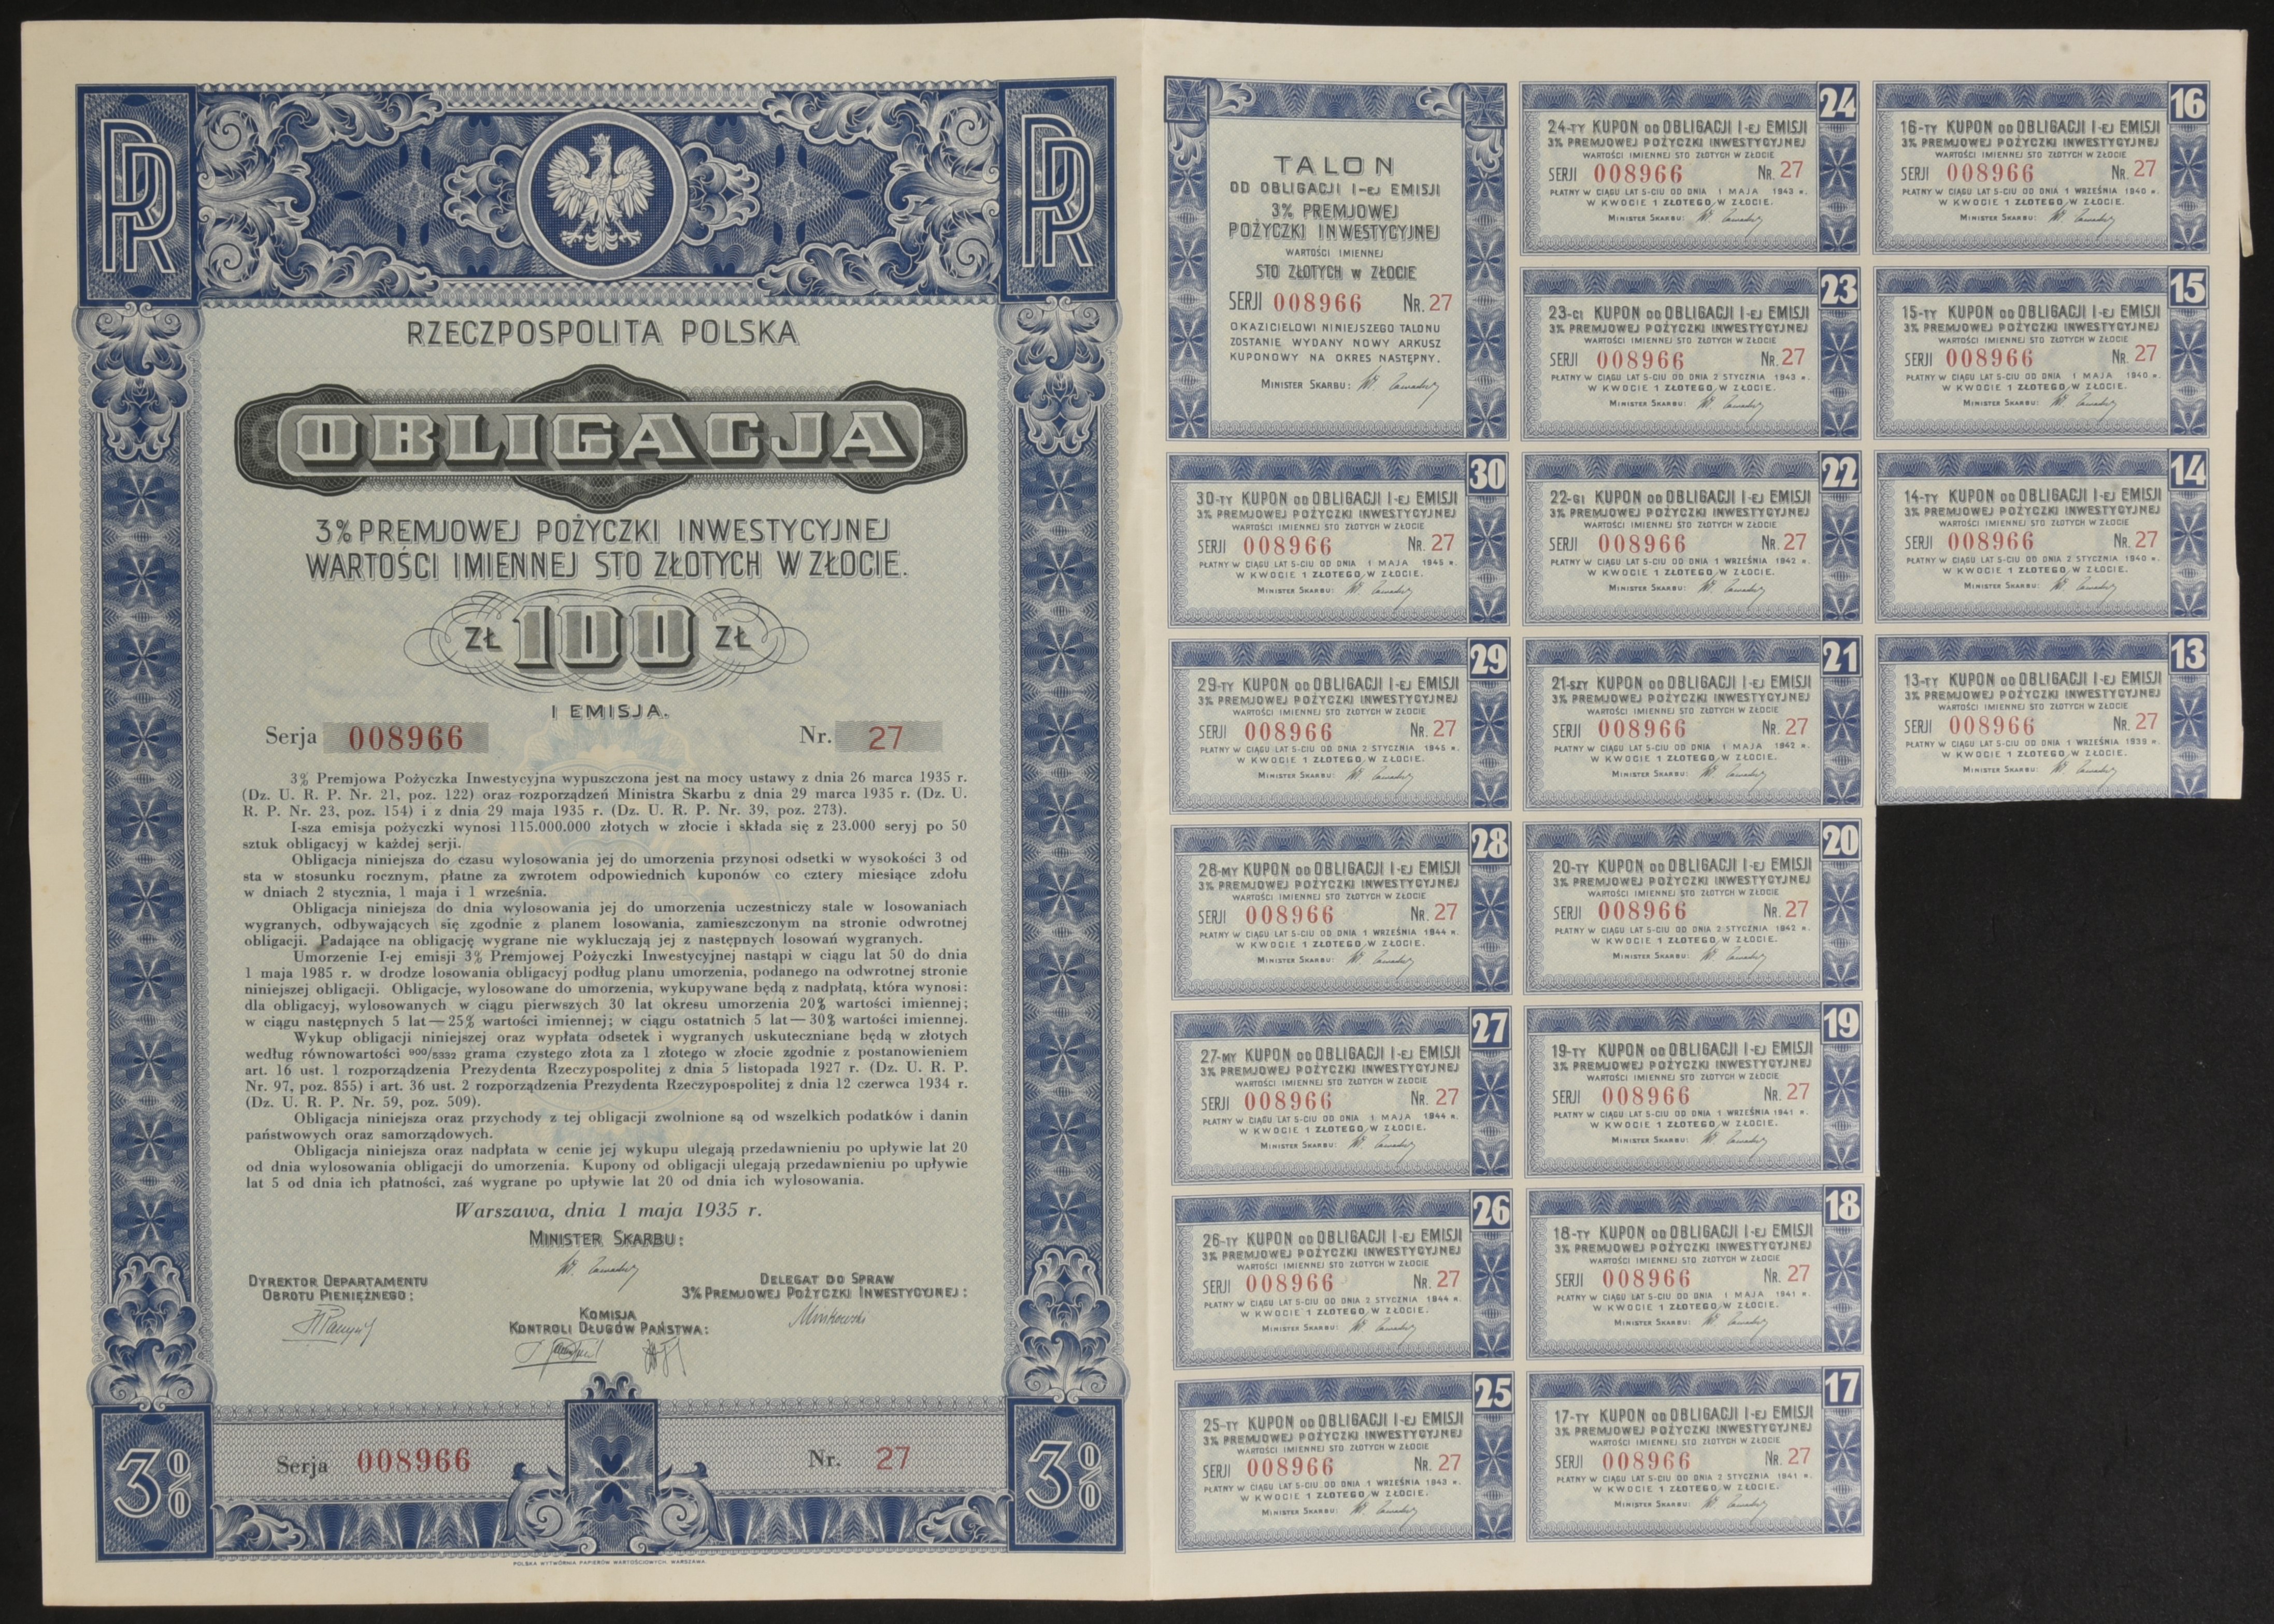 RP
RP
RZECZPOSPOLITA POLSKA
OBLIGACJA
3% PREMJOWEJ POŻYCZKI INWESTYCYJNEJ
WARTOŚCI IMIENNEJ STO ZŁOTYCH W ZŁOCIE.
ZŁ 100 ZŁ
I EMISJA.
Serja 008966 Nr. 27
3% Premjowa Pożyczka Inwestycyjna wypuszczona jest na mocy ustawy z dnia 26 marca 1935 r.
(Dz. U. R. P. Nr. 21, poz. 122) oraz rozporządzeń Ministra Skarbu z dnia 29 marca 1935 r. (Dz. U.
R. P. Nr. 23, poz. 154) i z dnia 29 maja 1935 r. (Dz. U. R. P. Nr. 39, poz. 273).
I-sza emisja pożyczki wynosi 115.000.000 złotych w złocie i składa się z 23.000 seryj po 50
sztuk obligacyj w każdej serji.
Obligacja niniejsza do czasu wylosowania jej do umorzenia przynosi odsetki w wysokości 3 od
sta w stosunku rocznym, płatne za zwrotem odpowiednich kuponów co cztery miesiące zdołu
w dniach 2 stycznia, 1 maja i 1 września.
Obligacja niniejsza do dnia wylosowania jej do umorzenia uczestniczy stale w losowaniach
wygranych, odbywających się zgodnie z planem losowania, zamieszczonym na stronie odwrotnej
obligacji. Padające na obligację wygrane nie wykluczają jej z następnych losowań wygranych.
Umorzenie I-ej emisji 3% Premjowej Pożyczki Inwestycyjnej nastąpi w ciągu lat 50 do dnia
1 maja 1985 r. w drodze losowania obligacyj podług planu umorzenia, podanego na odwrotnej stronie
niniejszej obligacji. Obligacje, wylosowane do umorzenia, wykupywane będą z nadpłatą, która wynosi:
dla obligacyj, wylosowanych w ciągu pierwszych 30 lat okresu umorzenia 20% wartości imiennej;
w ciągu następnych 5 lat — 25% wartości imiennej; w ciągu ostatnich 5 lat — 30% wartości imiennej.
Wykup obligacji niniejszej oraz wypłata odsetek i wygranych uskuteczniane będą w złotych
według równowartości 900/5332 grama czystego złota za 1 złotego w złocie zgodnie z postanowieniem
art. 16 ust. 1 rozporządzenia Prezydenta Rzeczypospolitej z dnia 5 listopada 1927 r. (Dz. U. R. P.
Nr. 97, poz. 855) i art. 36 ust. 2 rozporządzenia Prezydenta Rzeczypospolitej z dnia 12 czerwca 1934 r.
(Dz. U. R. P. Nr. 59, poz. 509).
Obligacja niniejsza oraz przychody z tej obligacji zwolnione są od wszelkich podatków i danin
państwowych oraz samorządowych.
Obligacja niniejsza oraz nadpłata w cenie jej wykupu ulegają przedawnieniu po upływie lat 20
od dnia wylosowania obligacji do umorzenia. Kupony od obligacji ulegają przedawnieniu po upływie
lat 5 od dnia ich płatności, zaś wygrane po upływie lat 20 od dnia ich wylosowania.
Warszawa, dnia 1 maja 1935 r.
MINISTER SKARBU:
DYREKTOR DEPARTAMENTU
OBROTU PIENIĘŻNEGO:
DELEGAT DO SPRAW
3% PREMJOWEJ POŻYCZKI INWESTYCYJNEJ:
KOMISJA
KONTROLI DŁUGÓW PAŃSTWA:
3%
Serja 008966 Nr. 27
3%
POLSKA WYTWÓRNIA PAPIERÓW WARTOŚCIOWYCH, WARSZAWA
TALON
OD OBLIGACJI I-EJ EMISJI
3% PREMJOWEJ
POŻYCZKI INWESTYCYJNEJ
WARTOŚCI IMIENNEJ
STO ZŁOTYCH W ZŁOCIE
SERJI 008966 NR. 27
OKAZICIELOWI NINIEJSZEGO TALONU
ZOSTANIE WYDANY NOWY ARKUSZ
KUPONOWY NA OKRES NASTĘPNY.
MINISTER SKARBU:
30
30-TY KUPON OD OBLIGACJI I-EJ EMISJI
3% PREMJOWEJ POŻYCZKI INWESTYCYJNEJ
WARTOŚCI IMIENNEJ STO ZŁOTYCH W ZŁOCIE
SERJI 008966 NR. 27
PŁATNY W CIĄGU LAT 5-CIU OD DNIA 1 MAJA 1945 R.
W KWOCIE 1 ZŁOTEGO W ZŁOCIE.
MINISTER SKARBU:
29
29-TY KUPON OD OBLIGACJI I-EJ EMISJI
3% PREMJOWEJ POŻYCZKI INWESTYCYJNEJ
WARTOŚCI IMIENNEJ STO ZŁOTYCH W ZŁOCIE
SERJI 008966 NR. 27
PŁATNY W CIĄGU LAT 5-CIU OD DNIA 2 STYCZNIA 1945 R.
W KWOCIE 1 ZŁOTEGO W ZŁOCIE.
MINISTER SKARBU:
28
28-MY KUPON OD OBLIGACJI I-EJ EMISJI
3% PREMJOWEJ POŻYCZKI INWESTYCYJNEJ
WARTOŚCI IMIENNEJ STO ZŁOTYCH W ZŁOCIE
SERJI 008966 NR. 27
PŁATNY W CIĄGU LAT 5-CIU OD DNIA 1 WRZEŚNIA 1944 R.
W KWOCIE 1 ZŁOTEGO W ZŁOCIE.
MINISTER SKARBU:
27
27-MY KUPON OD OBLIGACJI I-EJ EMISJI
3% PREMJOWEJ POŻYCZKI INWESTYCYJNEJ
WARTOŚCI IMIENNEJ STO ZŁOTYCH W ZŁOCIE
SERJI 008966 NR. 27
PŁATNY W CIĄGU LAT 5-CIU OD DNIA 1 MAJA 1944 R.
W KWOCIE 1 ZŁOTEGO W ZŁOCIE.
MINISTER SKARBU:
26
26-TY KUPON OD OBLIGACJI I-EJ EMISJI
3% PREMJOWEJ POŻYCZKI INWESTYCYJNEJ
WARTOŚCI IMIENNEJ STO ZŁOTYCH W ZŁOCIE
SERJI 008966 NR. 27
PŁATNY W CIĄGU LAT 5-CIU OD DNIA 2 STYCZNIA 1944 R.
W KWOCIE 1 ZŁOTEGO W ZŁOCIE.
MINISTER SKARBU:
25
25-TY KUPON OD OBLIGACJI I-EJ EMISJI
3% PREMJOWEJ POŻYCZKI INWESTYCYJNEJ
WARTOŚCI IMIENNEJ STO ZŁOTYCH W ZŁOCIE
SERJI 008966 NR. 27
PŁATNY W CIĄGU LAT 5-CIU OD DNIA 1 WRZEŚNIA 1943 R.
W KWOCIE 1 ZŁOTEGO W ZŁOCIE.
MINISTER SKARBU:
24
24-TY KUPON OD OBLIGACJI I-EJ EMISJI
3% PREMJOWEJ POŻYCZKI INWESTYCYJNEJ
WARTOŚCI IMIENNEJ STO ZŁOTYCH W ZŁOCIE
SERJI 008966 NR. 27
PŁATNY W CIĄGU LAT 5-CIU OD DNIA 1 MAJA 1943 R.
W KWOCIE 1 ZŁOTEGO W ZŁOCIE.
MINISTER SKARBU:
23
23-CI KUPON OD OBLIGACJI I-EJ EMISJI
3% PREMJOWEJ POŻYCZKI INWESTYCYJNEJ
WARTOŚCI IMIENNEJ STO ZŁOTYCH W ZŁOCIE
SERJI 008966 NR. 27
PŁATNY W CIĄGU LAT 5-CIU OD DNIA 2 STYCZNIA 1943 R.
W KWOCIE 1 ZŁOTEGO W ZŁOCIE.
MINISTER SKARBU:
22
22-GI KUPON OD OBLIGACJI I-EJ EMISJI
3% PREMJOWEJ POŻYCZKI INWESTYCYJNEJ
WARTOŚCI IMIENNEJ STO ZŁOTYCH W ZŁOCIE
SERJI 008966 NR. 27
PŁATNY W CIĄGU LAT 5-CIU OD DNIA 1 WRZEŚNIA 1942 R.
W KWOCIE 1 ZŁOTEGO W ZŁOCIE.
MINISTER SKARBU:
21
21-SZY KUPON OD OBLIGACJI I-EJ EMISJI
3% PREMJOWEJ POŻYCZKI INWESTYCYJNEJ
WARTOŚCI IMIENNEJ STO ZŁOTYCH W ZŁOCIE
SERJI 008966 NR. 27
PŁATNY W CIĄGU LAT 5-CIU OD DNIA 1 MAJA 1942 R.
W KWOCIE 1 ZŁOTEGO W ZŁOCIE.
MINISTER SKARBU:
20
20-TY KUPON OD OBLIGACJI I-EJ EMISJI
3% PREMJOWEJ POŻYCZKI INWESTYCYJNEJ
WARTOŚCI IMIENNEJ STO ZŁOTYCH W ZŁOCIE
SERJI 008966 NR. 27
PŁATNY W CIĄGU LAT 5-CIU OD DNIA 2 STYCZNIA 1942 R.
W KWOCIE 1 ZŁOTEGO W ZŁOCIE.
MINISTER SKARBU:
19
19-TY KUPON OD OBLIGACJI I-EJ EMISJI
3% PREMJOWEJ POŻYCZKI INWESTYCYJNEJ
WARTOŚCI IMIENNEJ STO ZŁOTYCH W ZŁOCIE
SERJI 008966 NR. 27
PŁATNY W CIĄGU LAT 5-CIU OD DNIA 1 WRZEŚNIA 1941 R.
W KWOCIE 1 ZŁOTEGO W ZŁOCIE.
MINISTER SKARBU:
18
18-TY KUPON OD OBLIGACJI I-EJ EMISJI
3% PREMJOWEJ POŻYCZKI INWESTYCYJNEJ
WARTOŚCI IMIENNEJ STO ZŁOTYCH W ZŁOCIE
SERJI 008966 NR. 27
PŁATNY W CIĄGU LAT 5-CIU OD DNIA 1 MAJA 1941 R.
W KWOCIE 1 ZŁOTEGO W ZŁOCIE.
MINISTER SKARBU:
17
17-TY KUPON OD OBLIGACJI I-EJ EMISJI
3% PREMJOWEJ POŻYCZKI INWESTYCYJNEJ
WARTOŚCI IMIENNEJ STO ZŁOTYCH W ZŁOCIE
SERJI 008966 NR. 27
PŁATNY W CIĄGU LAT 5-CIU OD DNIA 2 STYCZNIA 1941 R.
W KWOCIE 1 ZŁOTEGO W ZŁOCIE.
MINISTER SKARBU:
16
16-TY KUPON OD OBLIGACJI I-EJ EMISJI
3% PREMJOWEJ POŻYCZKI INWESTYCYJNEJ
WARTOŚCI IMIENNEJ STO ZŁOTYCH W ZŁOCIE
SERJI 008966 NR. 27
PŁATNY W CIĄGU LAT 5-CIU OD DNIA 1 WRZEŚNIA 1940 R.
W KWOCIE 1 ZŁOTEGO W ZŁOCIE.
MINISTER SKARBU:
15
15-TY KUPON OD OBLIGACJI I-EJ EMISJI
3% PREMJOWEJ POŻYCZKI INWESTYCYJNEJ
WARTOŚCI IMIENNEJ STO ZŁOTYCH W ZŁOCIE
SERJI 008966 NR. 27
PŁATNY W CIĄGU LAT 5-CIU OD DNIA 1 MAJA 1940 R.
W KWOCIE 1 ZŁOTEGO W ZŁOCIE.
MINISTER SKARBU:
14
14-TY KUPON OD OBLIGACJI I-EJ EMISJI
3% PREMJOWEJ POŻYCZKI INWESTYCYJNEJ
WARTOŚCI IMIENNEJ STO ZŁOTYCH W ZŁOCIE
SERJI 008966 NR. 27
PŁATNY W CIĄGU LAT 5-CIU OD DNIA 2 STYCZNIA 1940 R.
W KWOCIE 1 ZŁOTEGO W ZŁOCIE.
MINISTER SKARBU:
13
13-TY KUPON OD OBLIGACJI I-EJ EMISJI
3% PREMJOWEJ POŻYCZKI INWESTYCYJNEJ
WARTOŚCI IMIENNEJ STO ZŁOTYCH W ZŁOCIE
SERJI 008966 NR. 27
PŁATNY W CIĄGU LAT 5-CIU OD DNIA 1 WRZEŚNIA 1939 R.
W KWOCIE 1 ZŁOTEGO W ZŁOCIE.
MINISTER SKARBU: